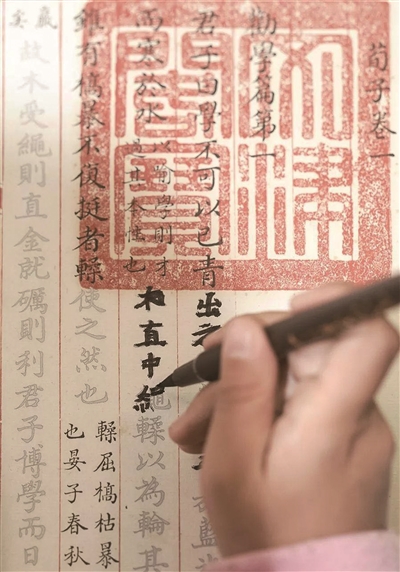 荀子卷一
勸學篇第一
君子曰學不可以已青出之
藍
而寒於水
以喻學則才
過其本性也
木直中繩輮以為輪其
雖有槁暴不復挺者輮使之然也
輮屈槁枯暴
也晏子春秋
嬴
故木受繩則直金就礪則利君子博學而日
文津閣寶